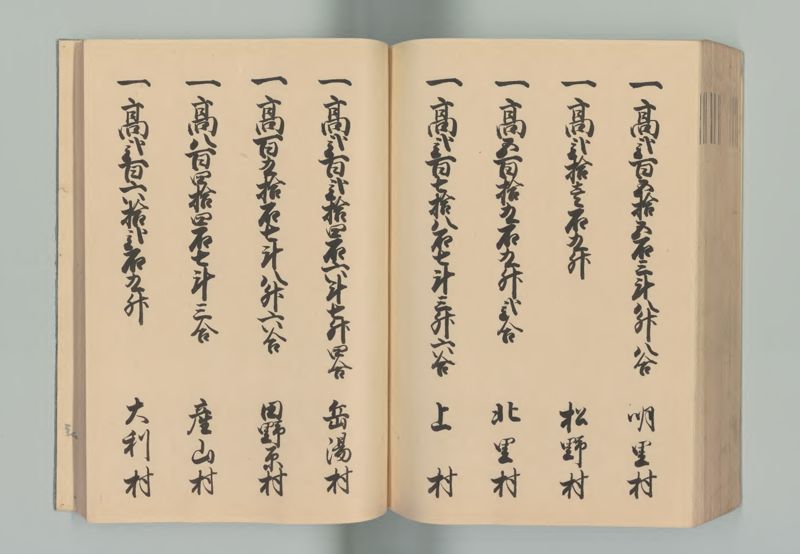 一高弐百五拾五石三斗八升八合 明里村
一高弐拾壱石九升 松野村
一高五百拾九石九升弐合 北里村
一高弐百七拾八石七斗三升六合 上村
一高弐百弐拾四石六斗七升四合 岳湯村
一高百九拾石七斗八升六合 田野原村
一高八百四拾四石七斗三合 産山村
一高弐百六拾弐石九升 大利村